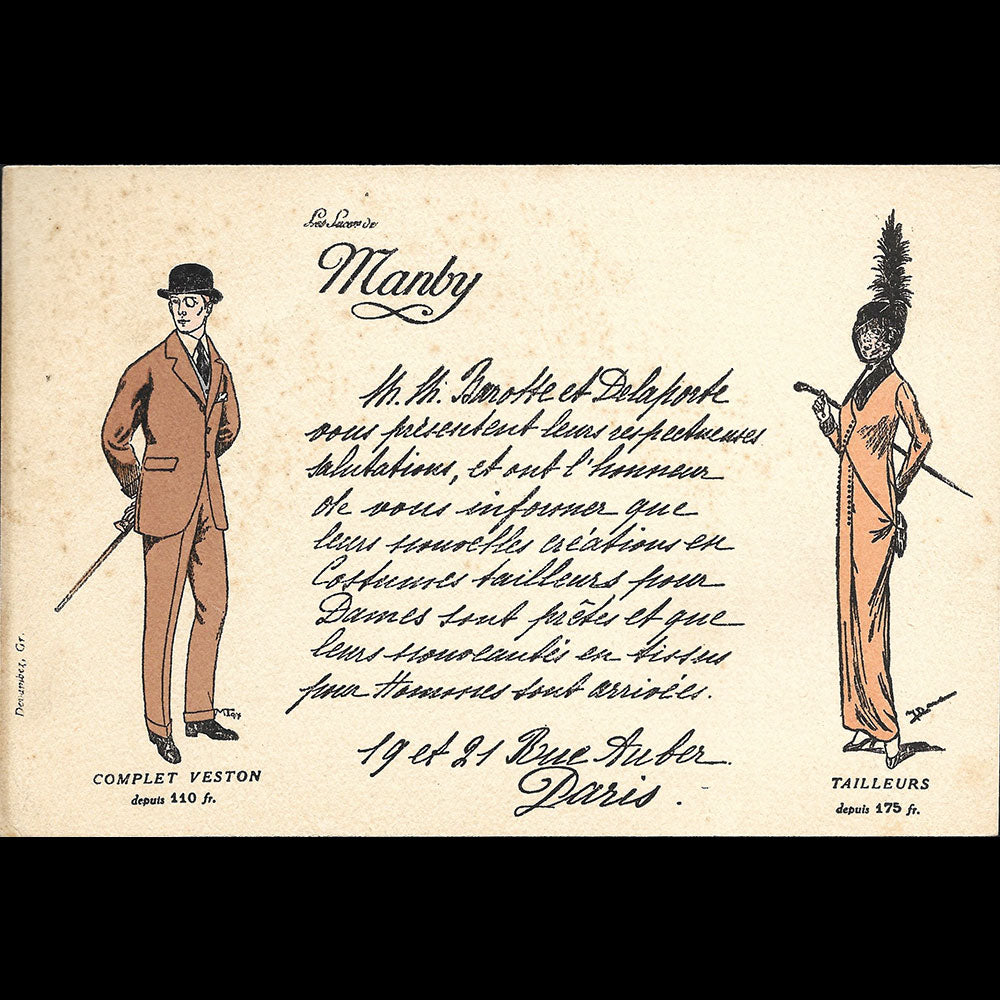 Les Succrs de
Manby
M. M. Barotte et Delaporte
vous présentent leurs respectueuses
salutations, et ont l'honneur
de vous informer que
leurs nouvelles créations en
Costumes tailleurs pour
Dames sont prêtes et que
leurs nouveautés en tissus
pour Hommes sont arrivées.
19 et 21 Rue Auber
Paris.
COMPLET VESTON
depuis 110 fr.
TAILLEURS
depuis 175 fr.
Devambez, Gr.